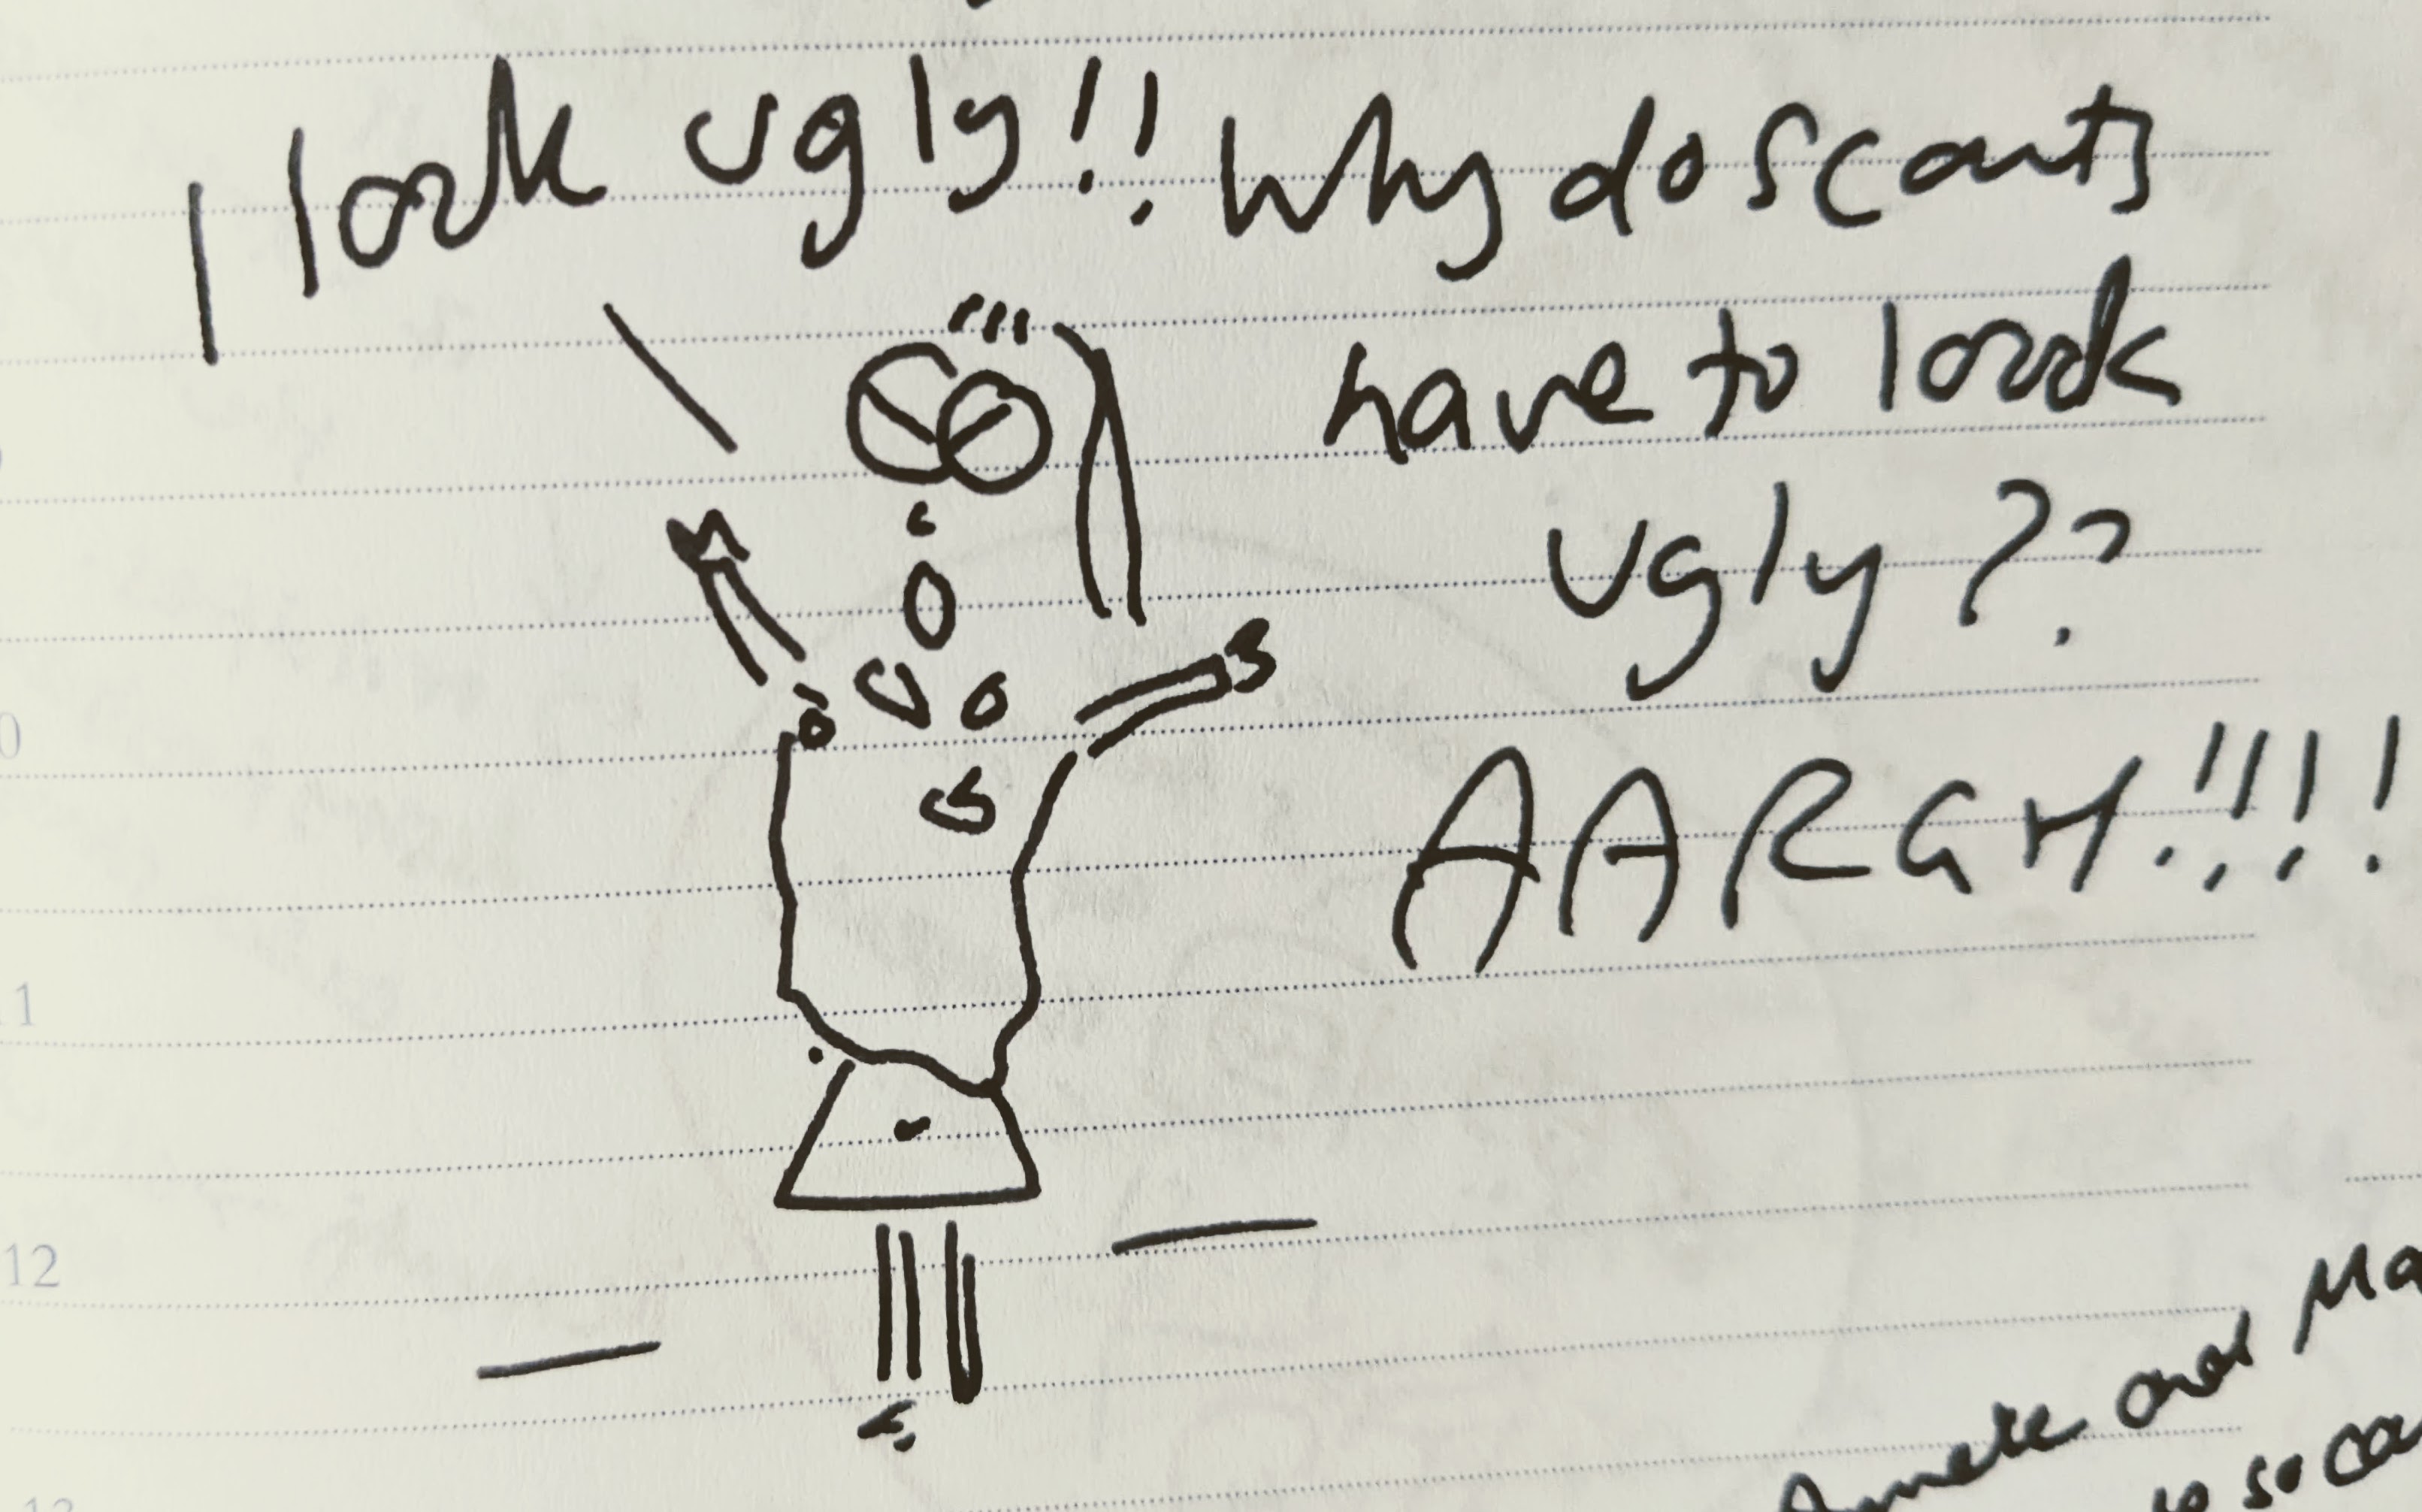 I look ugly!! Why do scouts
have to look
ugly??
AARGH!!!!
and Ma
so ca
10
11
12
13